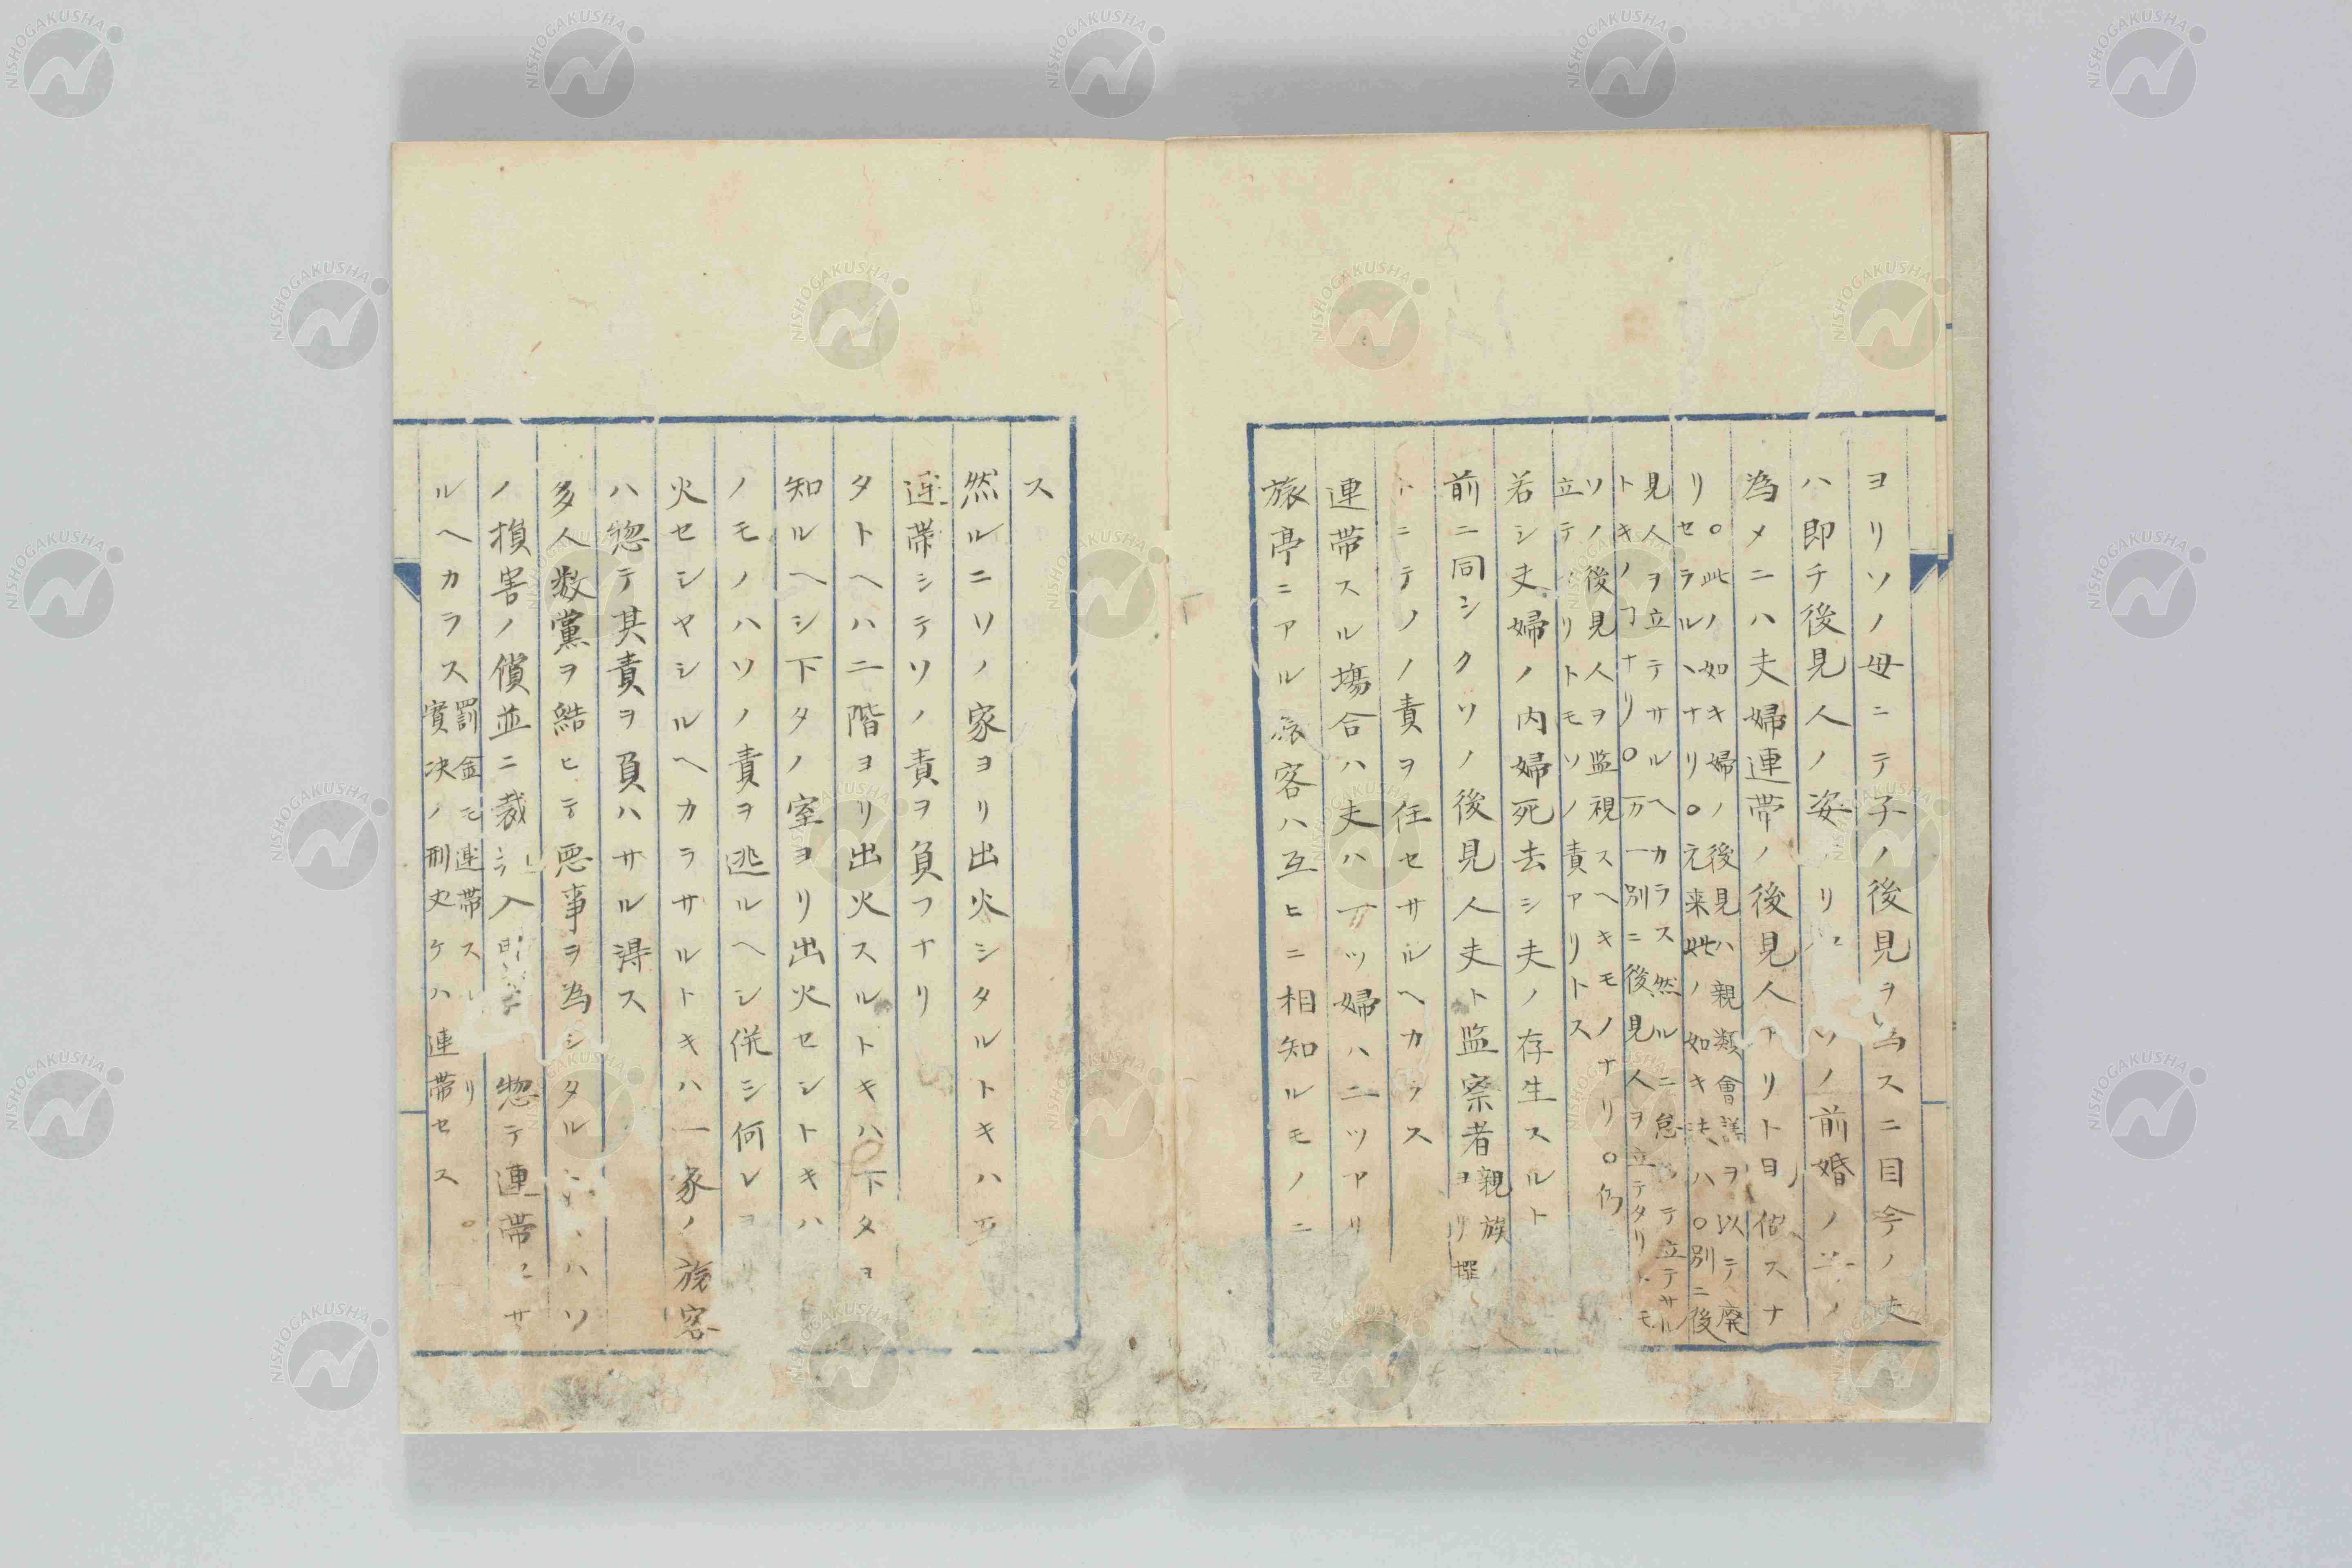 ヨリソノ母ニテ子ノ後見ヲ為スニ目今ノ夫
ハ即チ後見人ノ姿 リ ソノ前婚ノ ノ
為メニハ夫婦連帯ノ後見人アリト ヨ 做スナ
リ○此ノ如キ婦ノ後見ハ親類會議ヲ以テ廃
セラルヽナリ○元来此ノ如キ夫ハ○別ニ後
見人ヲ立テサルヘカラス然ルニ怠 テ立テサル
トキノヿナリ○万一別ニ後見人ヲ立テタリトモ
ソノ後見人ヲ監視スヘキモノナリ○仍
立テ リトモソノ責アリトス
若シ夫婦ノ内婦死去シ夫ノ存生スルト
前ニ同シクソノ後見人夫ト監察者親族
ヨリ撰
トニテノノ責ヲ任セサルヘカラス
連帯スル塲合ハ夫ハ一ツ婦ハ二ツアリ
旅亭ニアル旅客ハ互ヒニ相知ルモノニ
ス
然ルニソノ家ヨリ出火シタルトキハ互
連帯シテソノ責ヲ負フナリ
タトヘハ二階ヨリ出火スルトキハ下タヨ
知ルヘシ下タノ室ヨリ出火セシトキハ
ノモノハソノ責ヲ逃ルヘシ併シ何レヨ
火セシヤシルヘカラサルトキハ一家ノ旅客
ハ惣テ其責ヲ負ハサル淂ス
多人数黨ヲ結ヒテ悪事ヲ為シタル ハソ
ノ損害ノ償並ニ裁 入 惣テ連帯セサ
ルヘカラス罰金モ連帯スル リ
實决ノ刑丈ケハ連帯セス